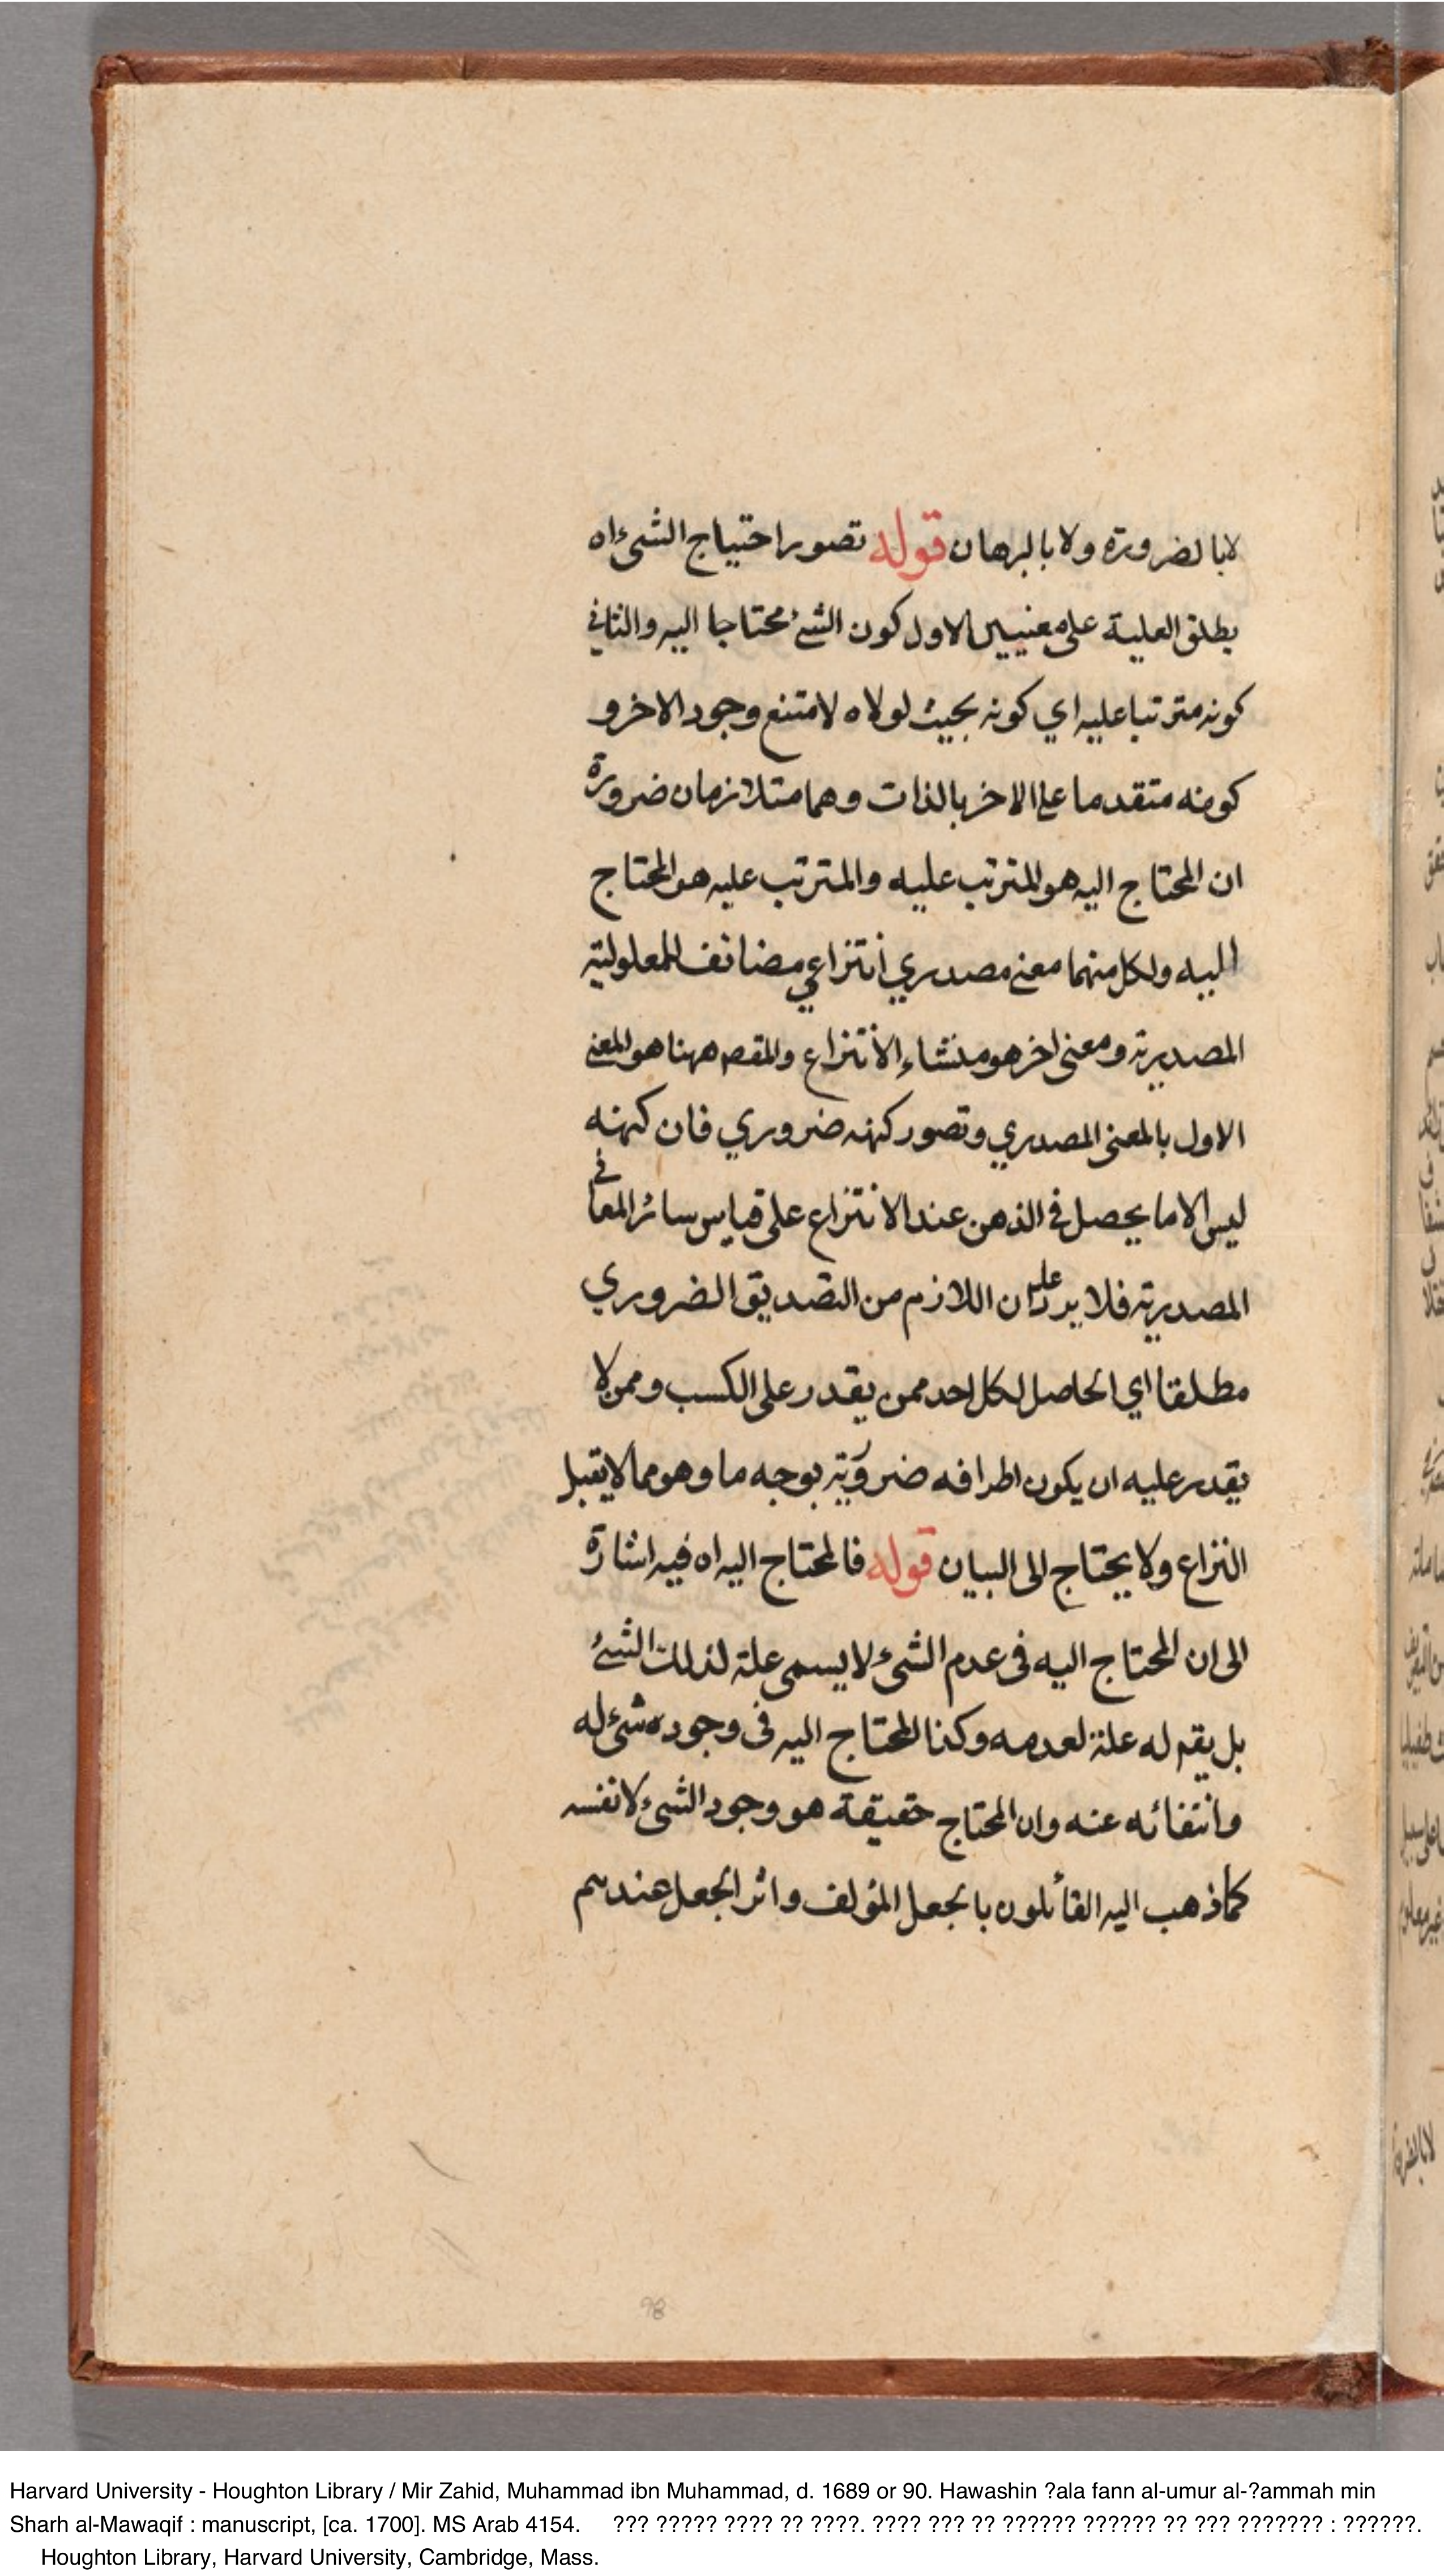 لابالضرورة ولا بالبرهان قوله تصور احتياج الشئ اه
يطلق العلية على معنيين الاول كون الشئ محتاجا اليه والثاني
كونه مترتبا عليه اي كونه بحيث لولاه لامتنع وجود الاخر و
كونه متقدما على الاخر بالذات وهما متلازمان ضرورة
ان المحتاج اليه هو المترتب عليه والمترتب عليه هو المحتاج
اليه ولكل منهما معنى مصدري انتزاعي مضائف للمعلولية
المصدرية ومعنى اخر هو منشاء الانتزاع والمقص ههنا هو المعنى
الاول بالمعنى المصدري وتصور كنهه ضروري فان كنهه
ليس الا ما يحصل في الذهن عند الانتزاع على قياس سائر المعاني
المصدرية فلا يرد عليه ان اللازم من التصديق الضروري
مطلقا اي الحاصل لكل احد ممن يقدر على الكسب وممن لا
يقدر عليه ان يكون اطرافه ضرورية بوجه ما وهو مما لا يقبل
النزاع ولا يحتاج الى البيان قوله فالمحتاج اليه اه فيه اشارة
الى ان المحتاج اليه فى عدم الشئ لا يسمى علة لذلك الشئ
بل يقم له علة لعدمه وكذا المحتاج اليه فى وجوده شئ له
وانتفائه عنه وان المحتاج حقيقة هو وجود الشئ لا نفسه
كما ذهب اليه القائلون بالجعل المؤلف واثر الجعل عندهم
98
Harvard University - Houghton Library / Mir Zahid, Muhammad ibn Muhammad, d. 1689 or 90. Hawashin ?ala fann al-umur al-?ammah min
Sharh al-Mawaqif : manuscript, [ca. 1700]. MS Arab 4154. ??? ????? ???? ?? ????. ???? ??? ?? ?????? ?????? ?? ??? ??????? : ??????.
Houghton Library, Harvard University, Cambridge, Mass.